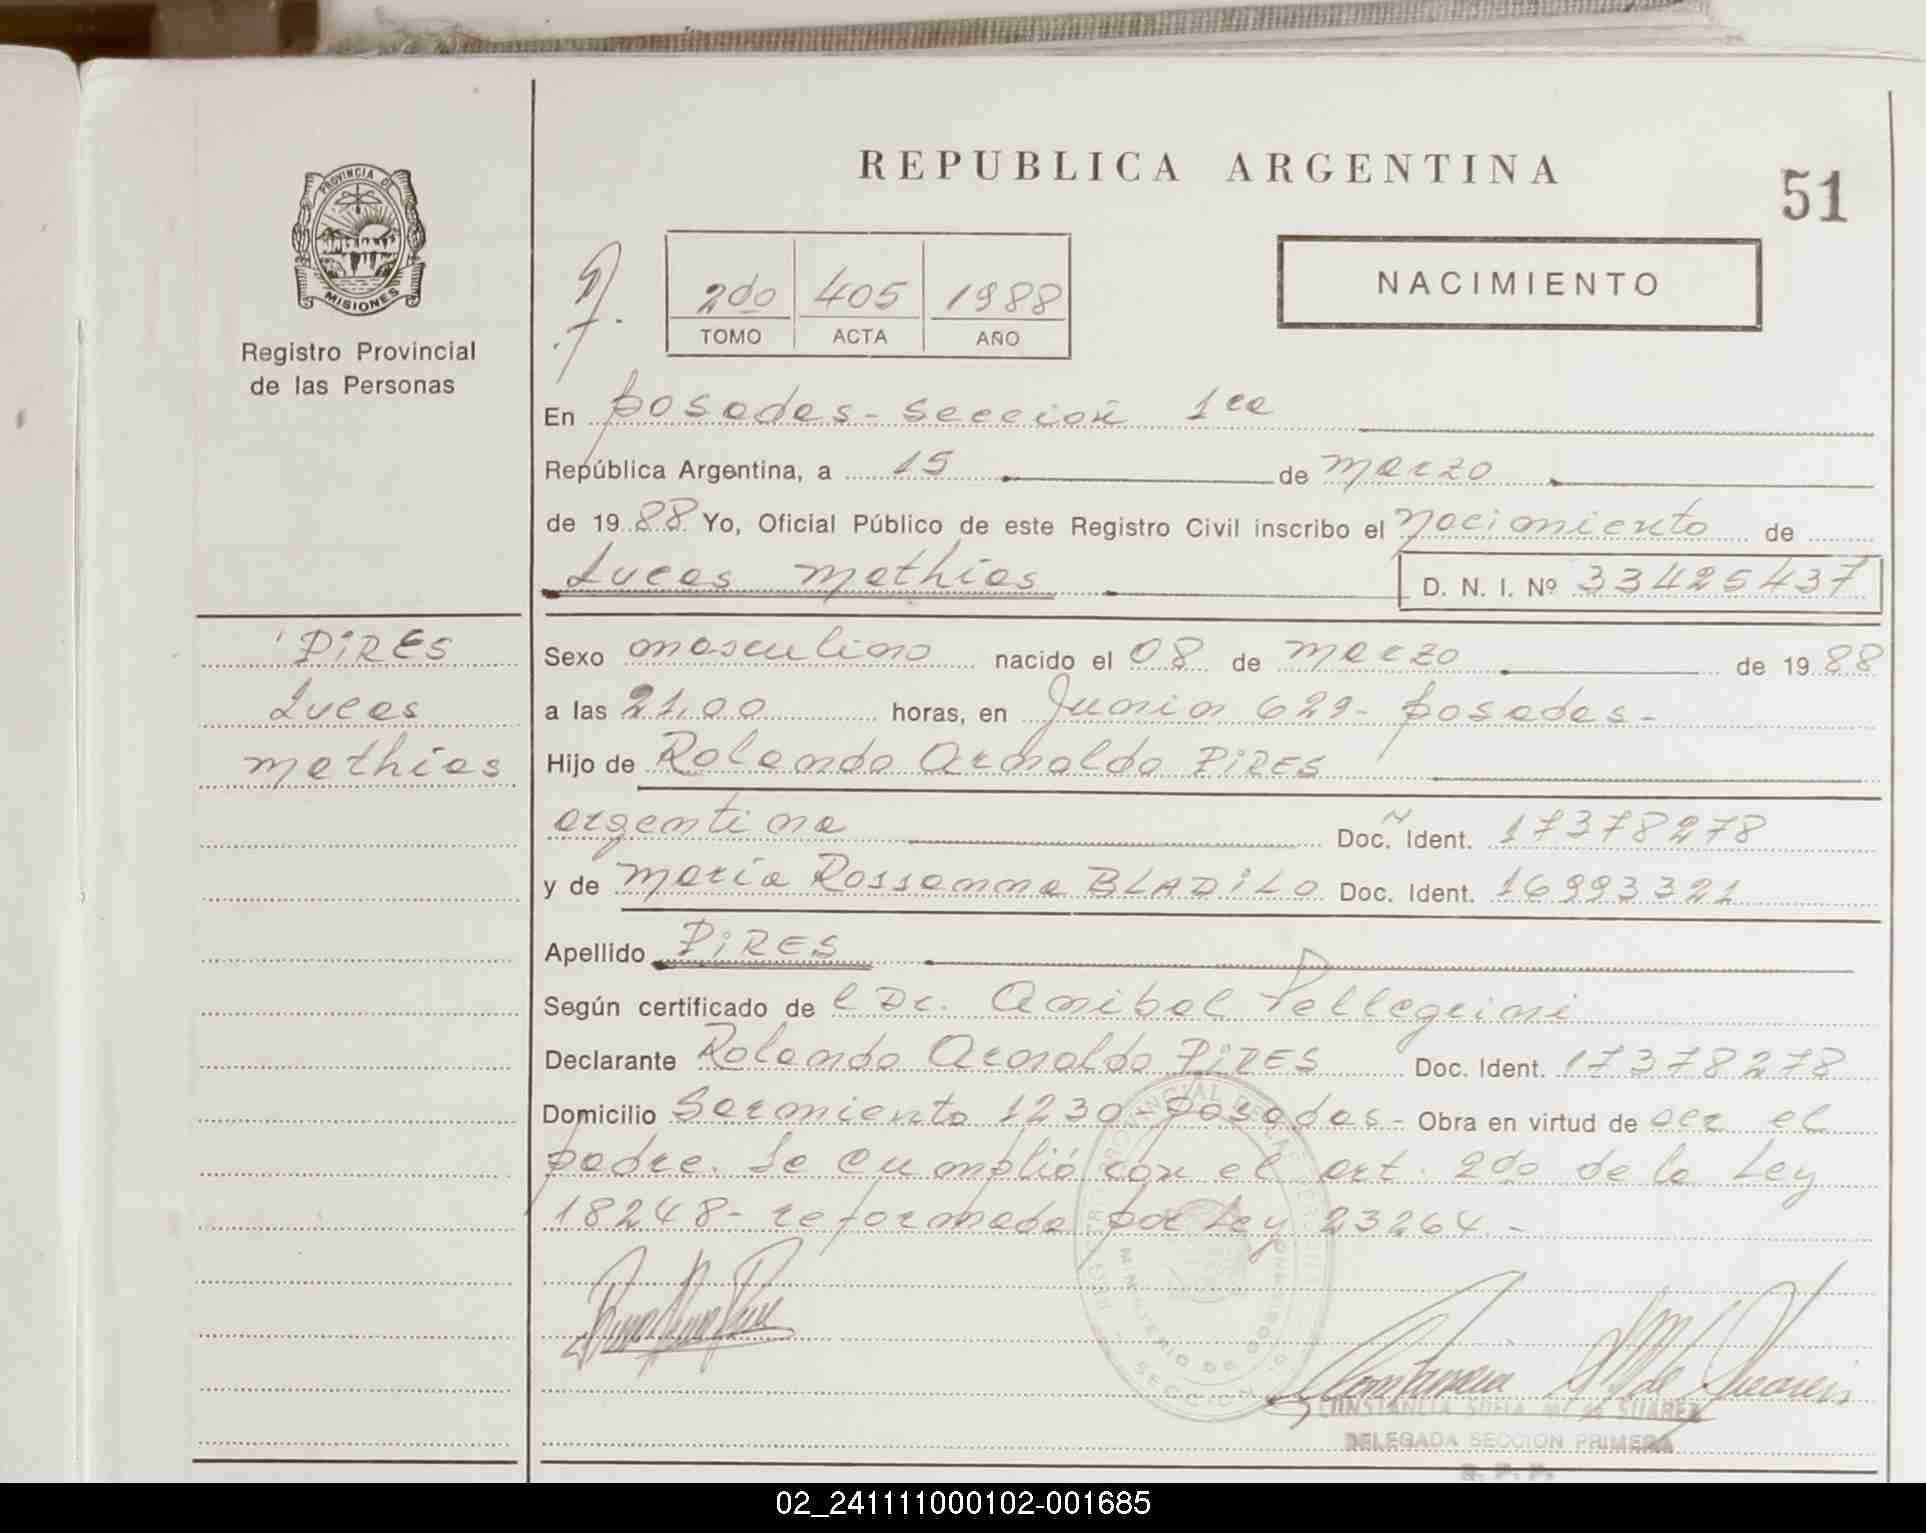 REPUBLICA ARGENTINA
51
PROVINCIA DE
MISIONES
Registro Provincial
de las Personas
2do 405 1988
TOMO ACTA AÑO
NACIMIENTO
En posadas - sección 1ra
República Argentina, a 15 de marzo
de 1988 Yo, Oficial Público de este Registro Civil inscribo el nacimiento de
Lucas mathias D. N. I. Nº 33425437
PIRES
Lucas
mathias
Sexo masculino nacido el 08 de marzo de 1988
a las 21,00 horas, en Junin 629 - posadas -
Hijo de Rolando Arnaldo PIRES
argentina Doc. Ident. 17378278
y de maría Rossanna BLADILO Doc. Ident. 16993321
Apellido PIRES
Según certificado de l Dr. Anibal Pellegrini
Declarante Rolando Arnaldo PIRES Doc. Ident. 17378278
Domicilio Sarmiento 1230 - posadas - Obra en virtud de ser el
padre. Se cumplió con el art. 2do de la Ley
18248 - reformada por Ley 23264. -
MINISTERIO DE GOBIERNO
SECCION
CONSTANCIA SOFIA M. de SUAREZ
DELEGADA SECCION PRIMERA
R. P. P.
02_241111000102-001685